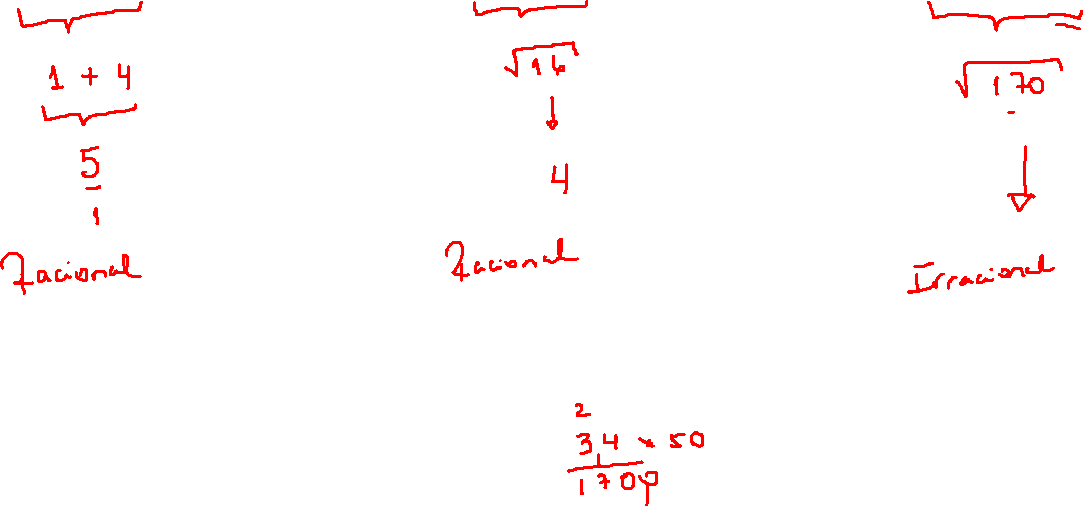 1 + 4
5
1
Racional
√16
4
Racional
√170
Irracional
2
3,4 × 50
1700